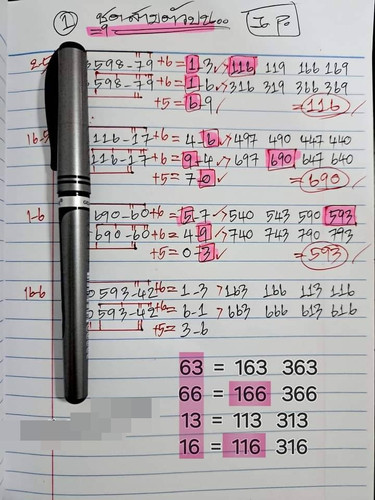 ① ชุดสามตัวบน.. I. P.
=9
2-5 598-79 +6 = 1-3 > 116 119 166 169
598-79 +6 = 1-6 > 316 319 366 369
+5 = 6-9 ✓ = 116 ✓
16-5 116-17 +6 = 4-6 ✓> 497 490 447 440
116-17 +6 = 9-4 ✓> 697 690 647 640
+5 = 7-0 ✓ = 690 ✓
1-6 690-60 +6 = 5-7 ✓ 540 543 590 593
690-60 +6 = 4-9 ✓ 740 743 790 793
+5 = 0-3 ✓ = 593 ✓
16-6 593-42 +6 = 1-3 > 163 166 113 116
593-42 +6 = 6-1 > 663 666 613 616
+5 = 3-6
63 = 163 363
66 = 166 366
13 = 113 313
16 = 116 316